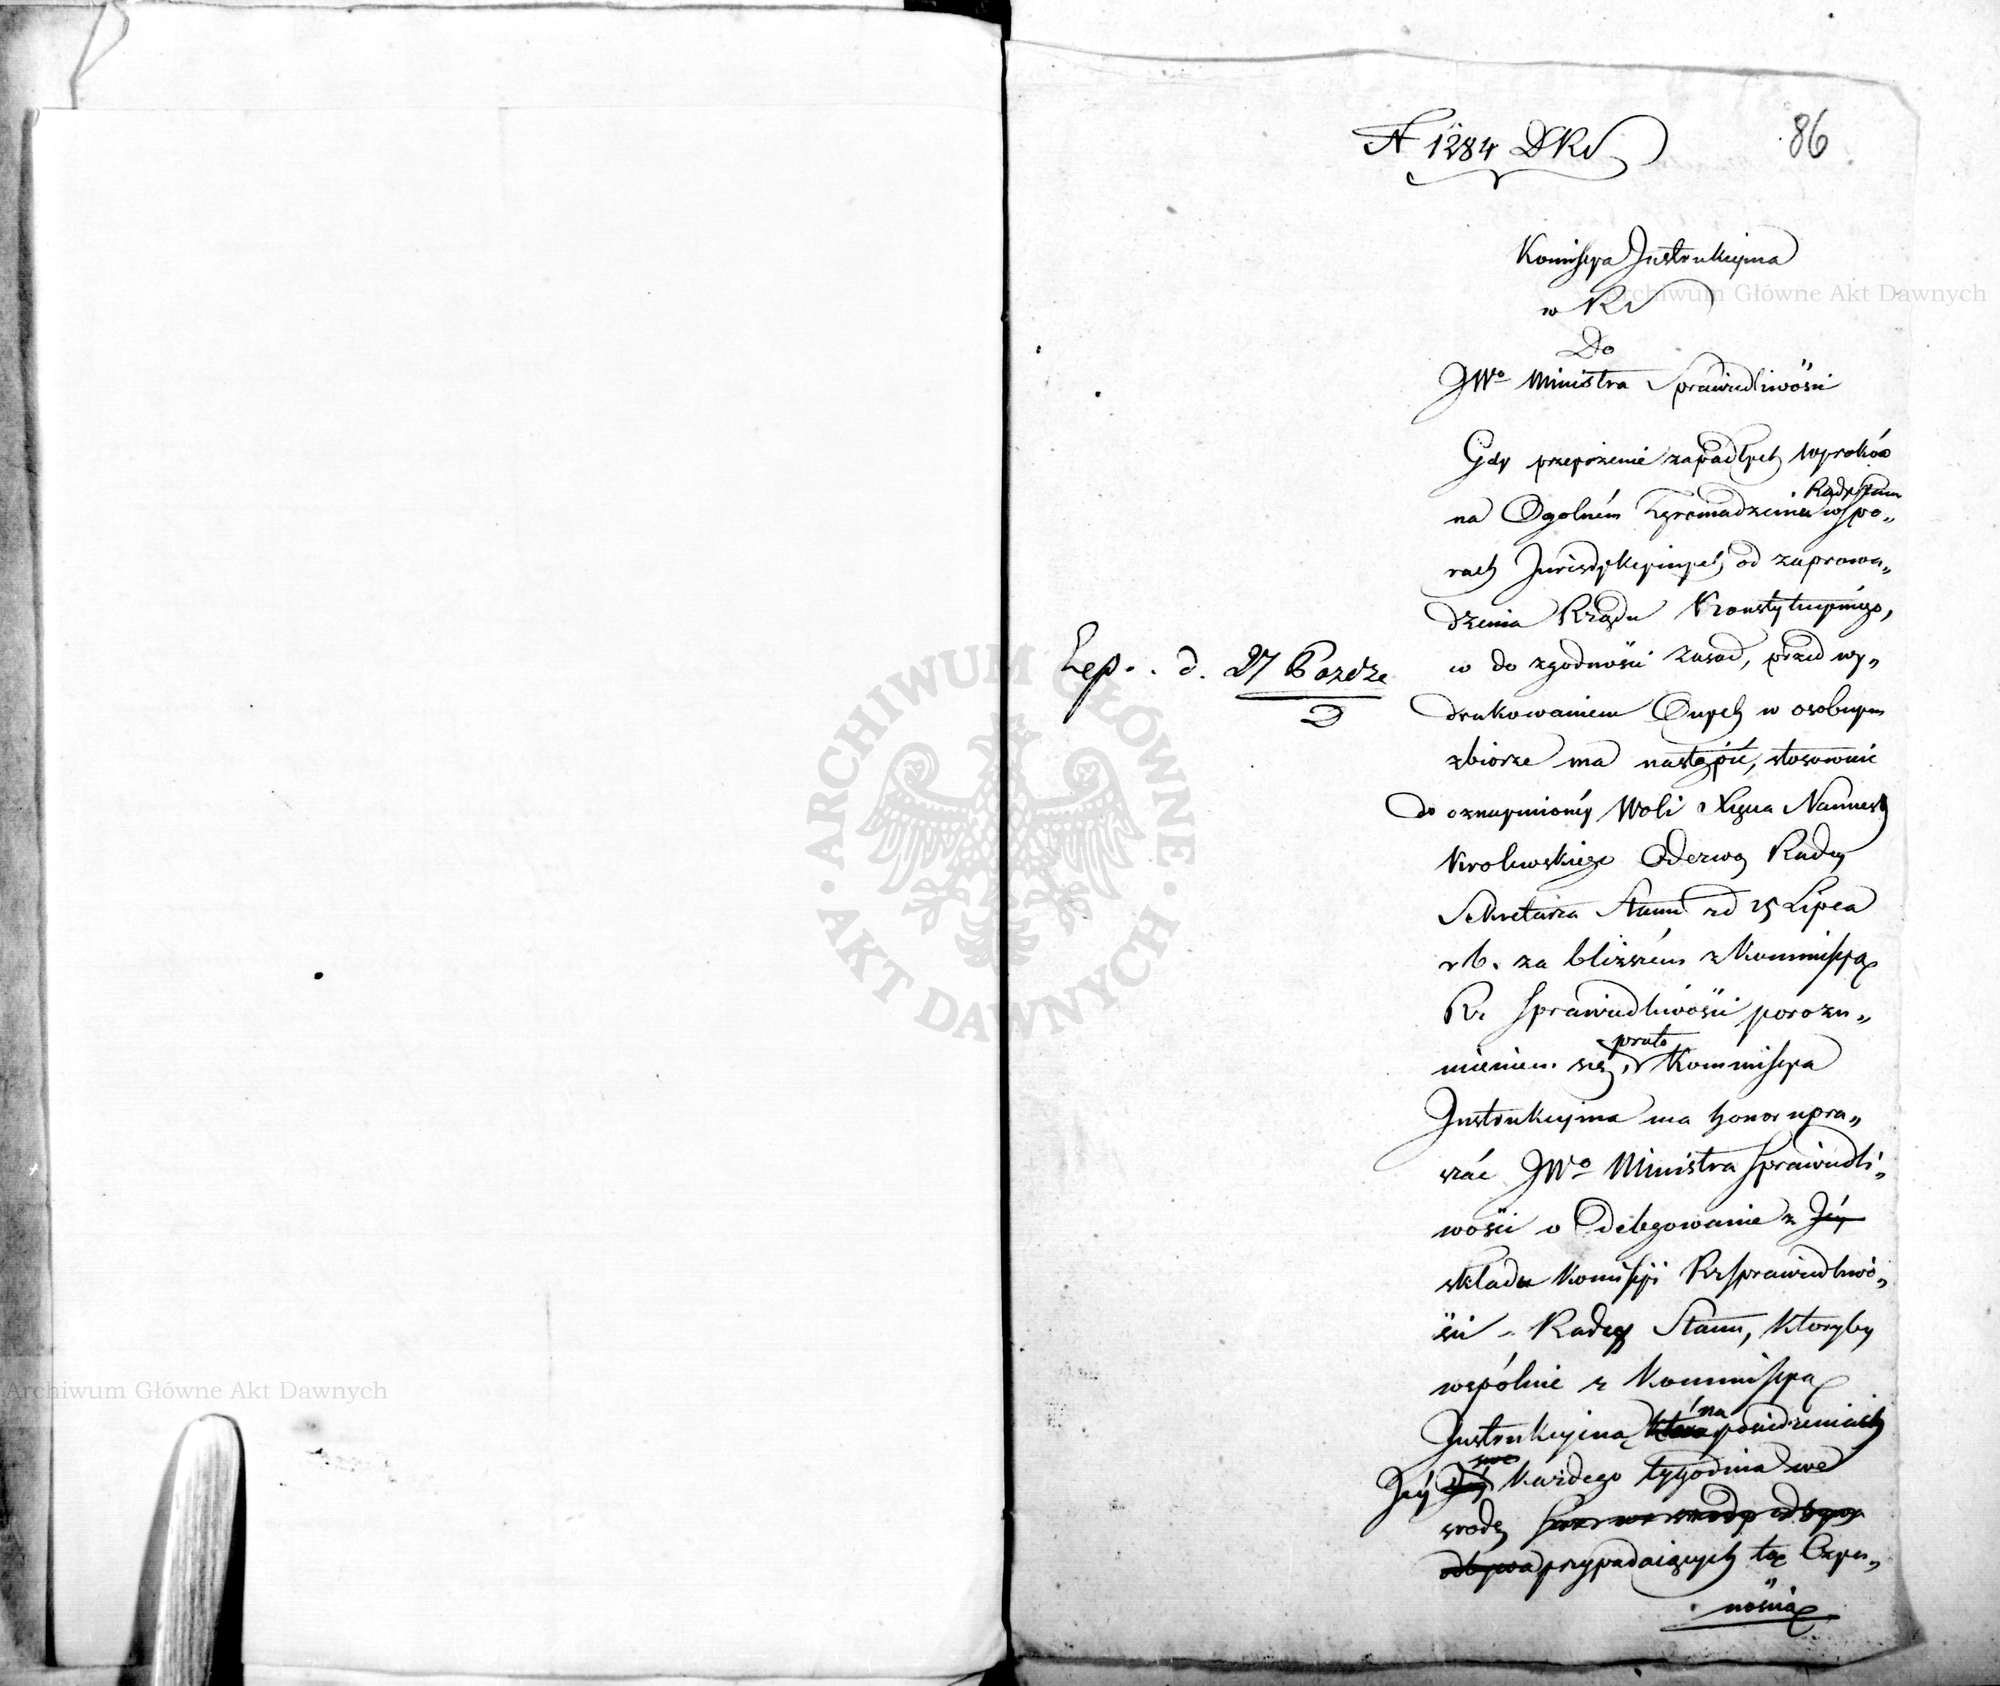 86
N 1284 DKS
Kommissya Instrukcyina
w KS
Do
JWo Ministra Sprawiedliwości
Gdy przeyrzenie zapadłych Wyroków
na Ogolném Zgromadzeniu Rady Stanu w spo„
rach Jurisdykcyinych od zaprowa„
dzenia Rządu Konstytucyinego,
co do zgodności zasad, przed wy„
drukowaniem Onych w osobnym
zbiorze ma nastąpić, stosownie
do oznaymionéy Woli Xięcia Namiest
Krolewskiego Odezwą Radcy
Sekretarza Stanu z d 15 Lipca
r b. za bliższém z Kommissyą
Rz Sprawiedliwości porozu„
mieniem się, przeto Kommissya
Instrukcyina ma honor upra„
szać JWo Ministra Sprawiedli„
wości o Delegowanie z Jéy
składu Komissyi Rz Sprawiedliwo„
ści Radcy Stanu, któryby
wspólnie z Kommissyą
Instrukcyiną która na posiedzeniach
Jéy swe każdego tygodnia we
srodę
odbywa przypadaiących tę Czyn„
nością
Exp. d. 27 Pazdze
D
Archiwum Główne Akt Dawnych
Archiwum Główne Akt Dawnych
ARCHIWUM GŁÓWNE
AKT DAWNYCH